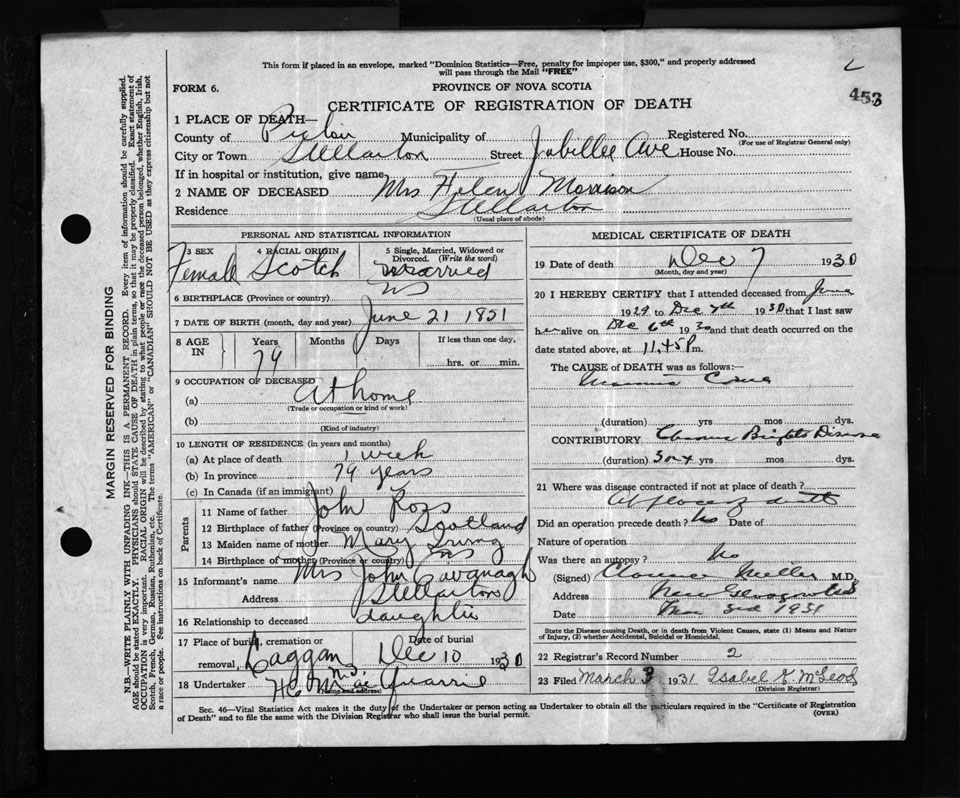 This form if placed in an envelope, marked "Dominion Statistics—Free, penalty for improper use, $300," and properly addressed
will pass through the Mail "FREE"
FORM 6.
PROVINCE OF NOVA SCOTIA
453
CERTIFICATE OF REGISTRATION OF DEATH
1 PLACE OF DEATH—
County of Pictou Municipality of Registered No.
(For use of Registrar General only)
City or Town Stellarton Street Jubillee Ave House No.
If in hospital or institution, give name
2 NAME OF DECEASED Mrs Helen Morrison
Residence Stellarton
(Usual place of abode)
PERSONAL AND STATISTICAL INFORMATION
3 SEX Female
4 RACIAL ORIGIN Scotch
5 Single, Married, Widowed or Divorced. (Write the word) Married
6 BIRTHPLACE (Province or country) NS
7 DATE OF BIRTH (month, day and year) June 21 1851
8 AGE IN Years 79 Months Days If less than one day, hrs. or min.
9 OCCUPATION OF DECEASED
(a) At home
(Trade or occupation or kind of work)
(b)
(Kind of industry)
10 LENGTH OF RESIDENCE (in years and months)
(a) At place of death 1 week
(b) In province 79 years
(c) In Canada (if an immigrant)
Parents
11 Name of father John Ross
12 Birthplace of father (Province or country) Scotland
13 Maiden name of mother Mary Irving
14 Birthplace of mother (Province or country) NS
15 Informant's name Mrs John Cavanagh
Address Stellarton
16 Relationship to deceased daughter
17 Place of burial, cremation or removal, Date of burial Dec 10 1930
18 Undertaker
(Name and address)
MEDICAL CERTIFICATE OF DEATH
19 Date of death Dec 7 1930
(Month, day and year)
20 I HEREBY CERTIFY that I attended deceased from June
1929 to Dec 7th 1930 that I last saw
her alive on Dec 6th 1930 and that death occurred on the
date stated above, at 11.45 P.m.
The CAUSE of DEATH was as follows:—
Coma
(duration) yrs mos dys.
CONTRIBUTORY Chronic Brights Disease
(duration) 3 or 4 yrs mos dys.
21 Where was disease contracted if not at place of death?
At place of death
Did an operation precede death? No Date of
Nature of operation
Was there an autopsy? No
(Signed) Clarence Miller M.D.
Address New Glasgow NS
Date Mar 3rd 1931
State the Disease causing Death, or in death from Violent Causes, state (1) Means and Nature
of Injury, (2) whether Accidental, Suicidal or Homicidal.
22 Registrar's Record Number 2
23 Filed March 3 1931 Isabel K. McLeod
(Division Registrar)
Sec. 46—Vital Statistics Act makes it the duty of the Undertaker or person acting as Undertaker to obtain all the particulars required in the "Certificate of Registration
of Death" and to file the same with the Division Registrar who shall issue the burial permit.
(OVER)
MARGIN RESERVED FOR BINDING
N.B.—WRITE PLAINLY WITH UNFADING INK—THIS IS A PERMANENT RECORD. Every item of information should be carefully supplied.
AGE should be stated EXACTLY. PHYSICIANS should STATE CAUSE OF DEATH in plain terms, so that it may be properly classified. Exact statement of
OCCUPATION is very important. RACIAL ORIGIN will be described by stating what people or race the deceased person belonged, whether English, Irish,
Scotch, French, German, Russian, Ruthenian, etc. The terms "AMERICAN" or "CANADIAN" SHOULD NOT BE USED as they express citizenship but not
a race or people. See instructions on back of Certificate.